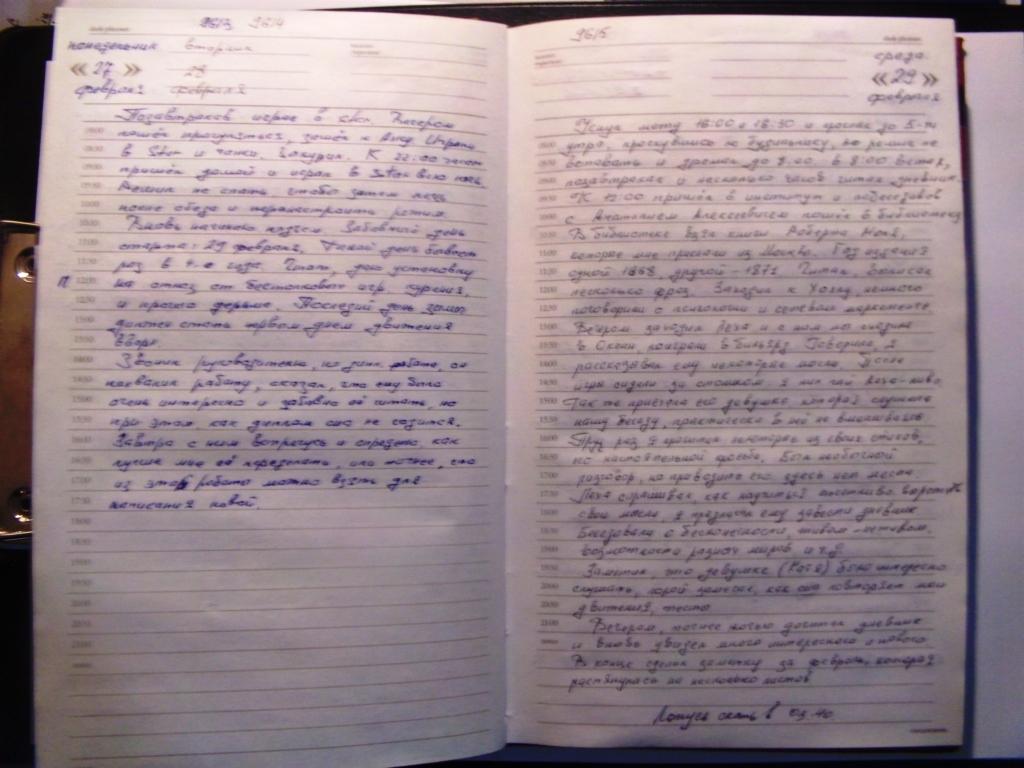 9613 9614
понедельник вторник
« 27 » 28
февраля февраля
Позавтракав играл в Вечером
пошёл прогуляться, зашёл к
в и Закурил. К 22:00 часам
пришёл домой и играл в всю ночь.
Решил не спать, чтобы затем лечь
после обеда и перенастроить режим.
Вновь начинаю поздно. Забавный день
старта: 29 февраля, Такой день бывает
раз в 4-е года. Итак, даю установку
на отказ от бестолковых игр, курения,
и прочего дерьма. Последний день зимы
должен стать первым днём движения
вверх.
Звонил руководителю, по дипл. работе, он
назвал работу, сказал, что ему было
очень интересно и забавно её читать, но
при этом, как диплом она не годится.
Завтра с ним встречусь и спрошу как
лучше мне её переделать, или точнее, что
из этой работы можно взять для
написания новой.
9615
среда
« 29 »
февраля
Уснул между 16:00 и 16:30 и проспал до 5-ти
утра, проснувшись по будильнику, но решил не
вставать и дремал до 8:00. В 8:00 встал,
позавтракал и несколько часов читал дневник.
К 12:00 пришёл в институт и побеседовав
с Анатолием Алексеевичем пошёл в библиотеку
В библиотеке взял книги Роберта
которые мне прислали из Москвы. Год издания
одной 1868, другой 1871. Читал, выписал
несколько фраз. Заходил к немного
поговорили о психологии и сетевом маркетинге.
Вечером заходил Лёха и с ним мы сходили
в Океан, поиграли в бильярд. Говорили, я
рассказывал ему некоторые мысли. После
игры сидели за столиком. Я пил чай Лёха-пиво.
Так же приехала его девушка которая слушала
нашу беседу, практически в неё не вмешиваясь.
раз я прочитал некоторые из своих стихов,
по настоятельной просьбе. Был необычный
разговор, но приводить его здесь нет места.
Лёха спрашивал как научиться выражать
свои мысли, я предложил ему завести дневник
Беседовали о бесконечности, живом-неживом,
возможности разных миров и т.д.
Заметил, что девушке (Катя) было интересно
слушать, порой замечал, как она повторяет мои
движения, жесты
Вечером, точнее ночью дочитал дневник
и вновь увидел много интересного и нового.
В конце сделал заметку за февраль, которая
растянулась на несколько листов
Ложусь спать в 03:40.